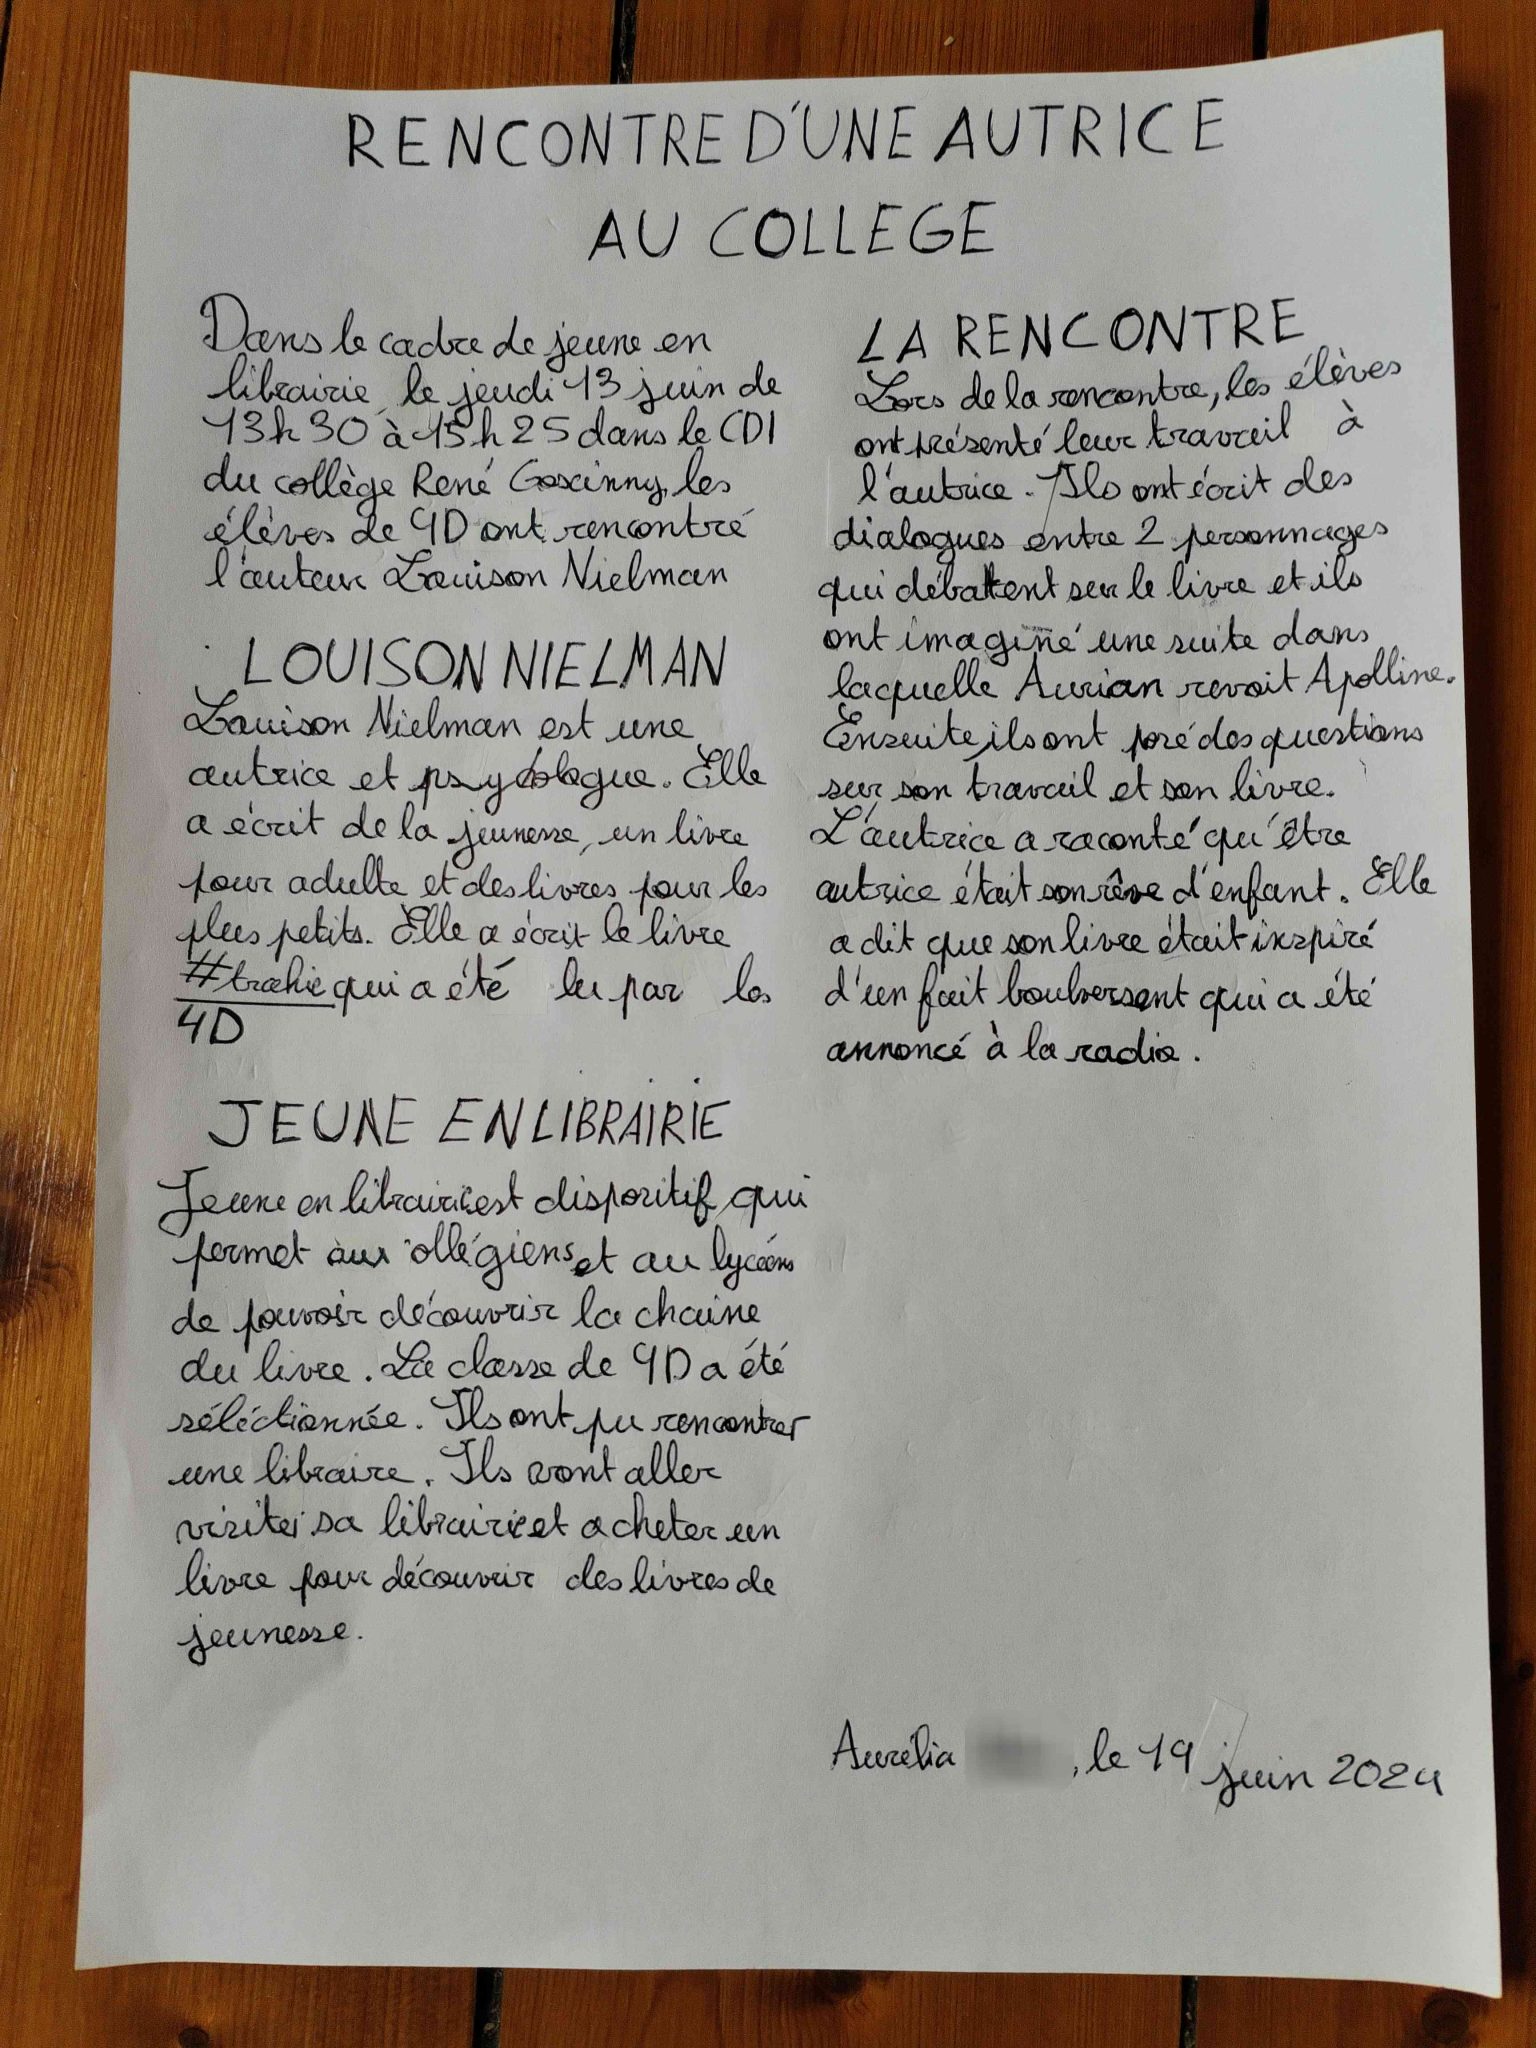 RENCONTRE D'UNE AUTRICE
AU COLLEGE
Dans le cadre de jeune en
librairie, le jeudi 13 juin de
13h30 à 15h25 dans le CDI
du collège René Goscinny, les
élèves de 4D ont rencontré
l'auteur Louison Nielman
LOUISON NIELMAN
Louison Nielman est une
autrice et psychologue. Elle
a écrit de la jeunesse, un livre
pour adulte et des livres pour les
plus petits. Elle a écrit le livre
#trahie qui a été lu par les
4D
JEUNE EN LIBRAIRIE
Jeune en librairie est dispositif qui
permet aux collégiens et au lycéens
de pouvoir découvrir la chaine
du livre. La classe de 4D a été
séléctionnée. Ils ont pu rencontrer
une libraire. Ils vont aller
visiter sa librairie et acheter un
livre pour découvrir des livres de
jeunesse.
LA RENCONTRE
Lors de la rencontre, les élèves
ont présenté leur travail à
l'autrice. Ils ont écrit des
dialogues entre 2 personnages
qui débattent sur le livre et ils
ont imaginé une suite dans
laquelle Aurian revoit Apolline.
Ensuite, ils ont posé des questions
sur son travail et son livre.
L'autrice a raconté qu'être
autrice était son rêve d'enfant. Elle
a dit que son livre était inspiré
d'un fait boulversant qui a été
annoncé à la radio.
Aurélia , le 19 juin 2024